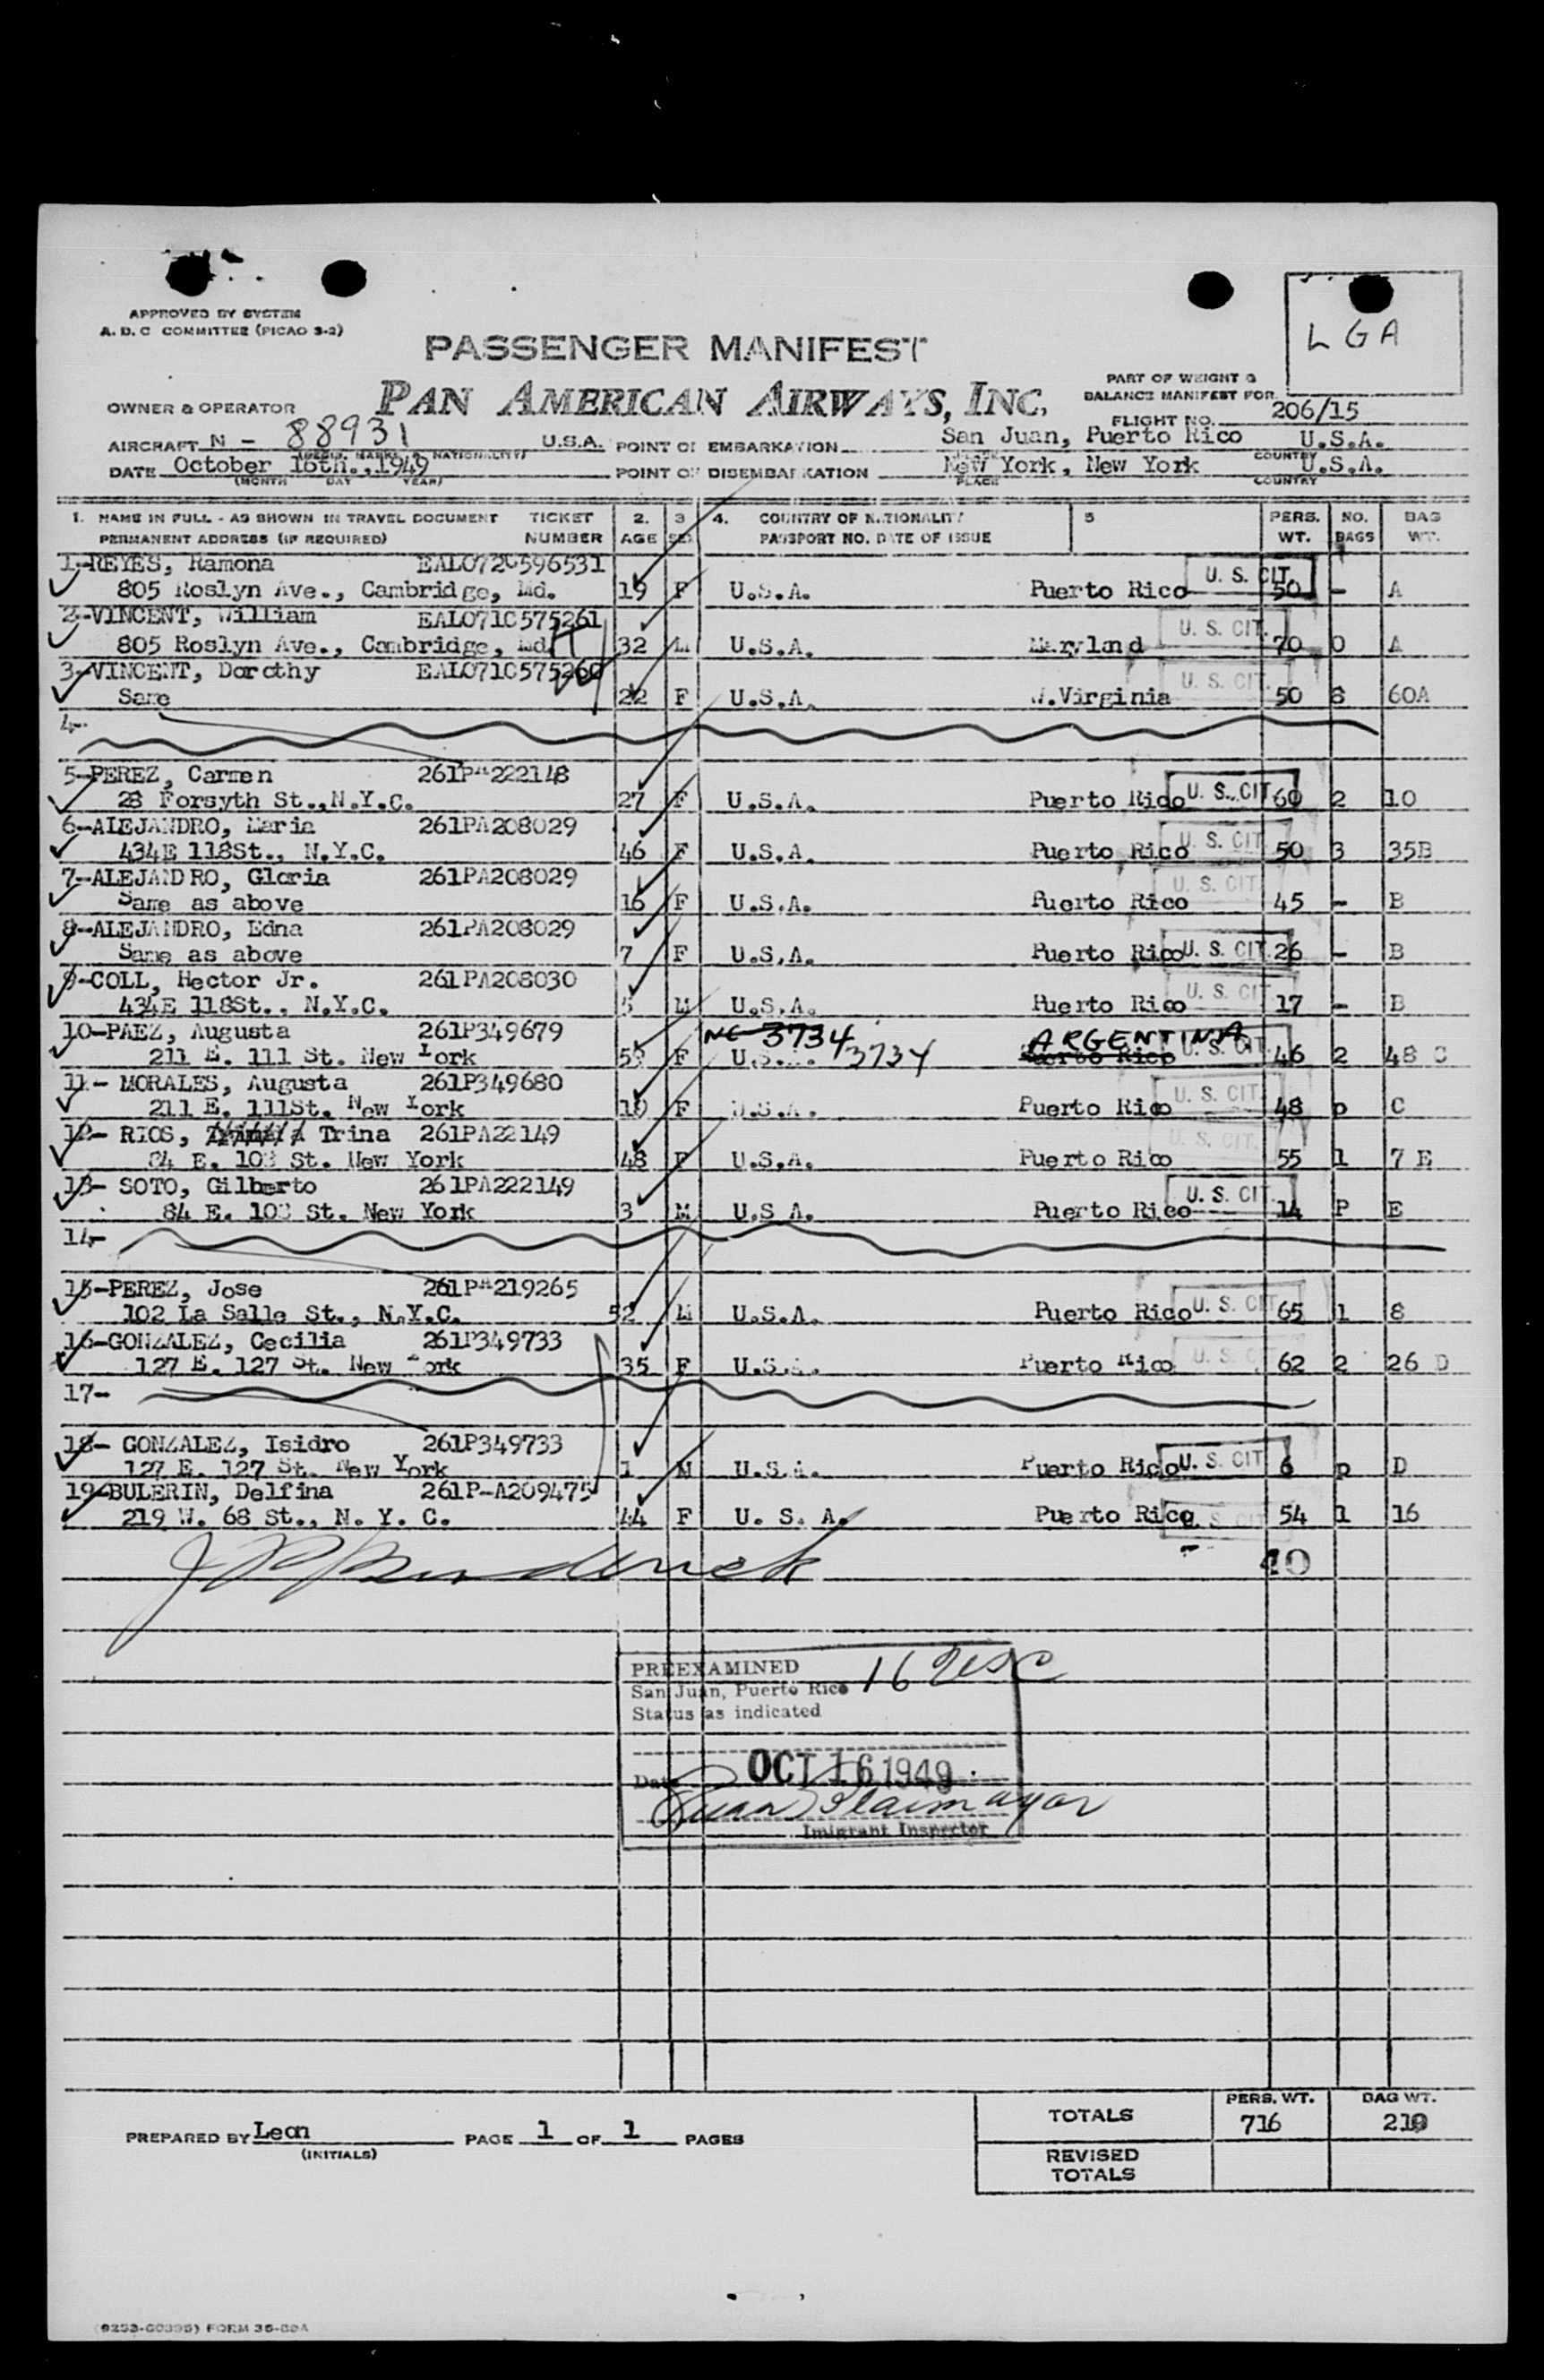 APPROVED BY SYSTEM
A. D. C COMMITTEE (PICAO 3-2)
LGA
PASSENGER MANIFEST
PAN AMERICAN AIRWAYS, INC.
PART OF WEIGHT &
BALANCE MANIFEST FOR
OWNER & OPERATOR
FLIGHT NO. 206/15
AIRCRAFT N - 88931 U.S.A. POINT OF EMBARKATION San Juan, Puerto Rico U.S.A.
(REGIS. MARKS & NATIONALITY) PLACE COUNTRY
DATE October 16th., 1949 POINT OF DISEMBARKATION New York, New York U.S.A.
(MONTH DAY YEAR) PLACE COUNTRY
1. NAME IN FULL - AS SHOWN IN TRAVEL DOCUMENT TICKET 2. 3 4. COUNTRY OF NATIONALITY 5 PERS. NO. BAG
PERMANENT ADDRESS (IF REQUIRED) NUMBER AGE SEX PASSPORT NO. DATE OF ISSUE WT. BAGS WT.
1-REYES, Ramona EAL072C596531
805 Roslyn Ave., Cambridge, Md. 19 F U.S.A. Puerto Rico U. S. CIT. 50 - A
2-VINCENT, William EAL071C575261
805 Roslyn Ave., Cambridge, Md. 32 M U.S.A. Maryland U. S. CIT. 70 0 A
3-VINCENT, Dorothy EAL071C575260
Same 22 F U.S.A. W.Virginia U. S. CIT. 50 6 60A
4-
5-PEREZ, Carmen 261PA222148
28 Forsyth St.,N.Y.C. 27 F U.S.A. Puerto Rico U. S. CIT 60 2 10
6-ALEJANDRO, Maria 261PA208029
434E 118St., N.Y.C. 46 F U.S.A. Puerto Rico U. S. CIT 50 3 35B
7-ALEJANDRO, Gloria 261PA208029
Same as above 16 F U.S.A. Puerto Rico U. S. CIT 45 - B
8-ALEJANDRO, Edna 261PA208029
Same as above 7 F U.S.A. Puerto Rico U. S. CIT 26 - B
9-COLL, Hector Jr. 261PA208030
434E 118St., N.Y.C. 5 M U.S.A. Puerto Rico U. S. CIT 17 - B
10-PAEZ, Augusta 261P349679 NC 3734 ARGENTINA
211 E. 111 St. New York 59 F U.S.A. 3734 Puerto Rico U. S. CIT. 46 2 48 C
11- MORALES, Augusta 261P349680
211 E. 111St. New York F U.S.A. Puerto Rico U. S. CIT. 48 p C
12- RIOS, Trina 261PA22149
84 E. 108 St. New York 48 F U.S.A. Puerto Rico U. S. CIT. 55 1 7 E
13- SOTO, Gilberto 261PA222149
84 E. 108 St. New York 3 M U.S A. Puerto Rico U. S. CIT. 14 P E
14-
15-PEREZ, Jose 261PA219265
102 La Salle St., N.Y.C. 52 M U.S.A. Puerto Rico U. S. CIT. 65 1 8
16-GONZALEZ, Cecilia 261P349733
127 E. 127 St. New York 35 F U.S.A. Puerto Rico U. S. C 62 2 26 D
17-
18- GONZALEZ, Isidro 261P349733
127 E. 127 St. New York 1 M U.S.A. Puerto Rico U. S. CIT 6 p D
19-BULERIN, Delfina 261P-A209475
219 W. 68 St., N. Y. C. 44 F U. S. A. Puerto Rico U. S CIT 54 1 16
PREEXAMINED 16 USC
San Juan, Puerto Rico
Status as indicated
Date OCT 16 1949
Imigrant Inspector
PERS. WT. BAG WT.
TOTALS 716 210
PREPARED BY Leon PAGE 1 OF 1 PAGES
(INITIALS)
REVISED
TOTALS